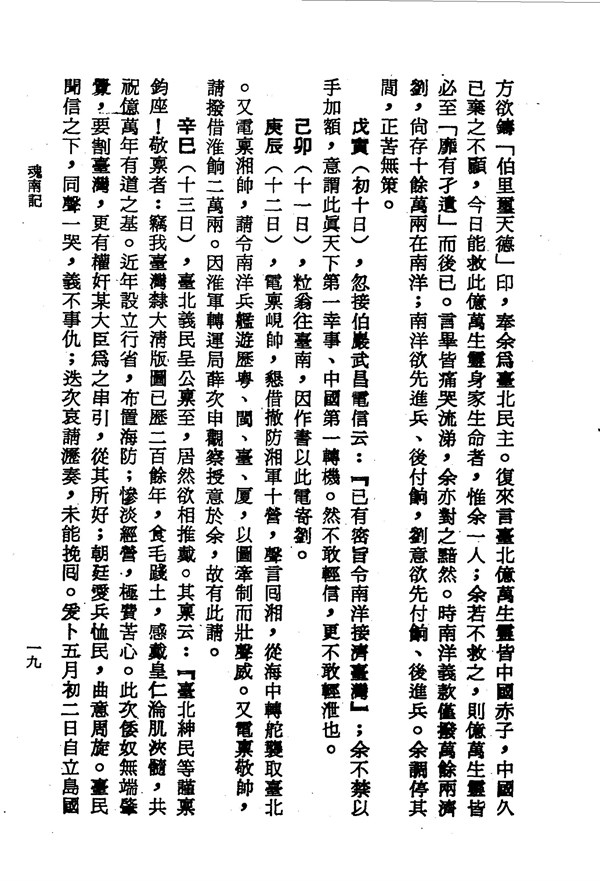 方欲鑄「伯里璽天德」印，奉余為臺北民主。復來言臺北億萬生靈皆中國赤子，中國久
已棄之不顧，今日能救此億萬生靈身家生命者，惟余一人；余若不救之，則億萬生靈皆
必至「靡有孑遺」而後已。言畢皆痛哭流涕，余亦對之黯然。時南洋義款僅撥萬餘兩濟
劉，尚存十餘萬兩在南洋；南洋欲先進兵、後付餉，劉意欲先付餉、後進兵。余調停其
間，正苦無策。
戊寅（初十日），忽接伯嚴武昌電信云：『已有密旨令南洋接濟臺灣』；余不禁以
手加額，意謂此眞天下第一幸事、中國第一轉機。然不敢輕信，更不敢輕泄也。
己卯（十一日），粒翁往臺南，因作書以此電寄劉。
庚辰（十二日），電稟峴帥，懇借撤防湘軍十營，聲言囘湘，從海中轉舵襲取臺北
。又電稟湘帥，請令南洋兵艦遊歷粵、閩、臺、厦，以圖牽制而壯聲威。又電稟敬帥，
請撥借淮餉二萬兩。因淮軍轉運局薛次申觀察授意於余，故有此請。
辛巳（十三日），臺北義民呈公稟至，居然欲相推戴。其稟云：『臺北紳民等謹稟
鈞座！敬稟者：竊我臺灣隸大淸版圖已歷二百餘年，食毛踐土，感戴皇仁淪肌浹髓，共
祝億萬年有道之基。近年設立行省，布置海防；慘淡經營，極費苦心。此次倭奴無端肇
釁，要割臺灣，更有權奸某大臣為之串引，從其所好；朝廷愛兵恤民，曲意周旋。臺民
聞信之下，同聲一哭，義不事仇；迭次哀請瀝奏，未能挽囘。爰卜五月初二日自立島國
魂南記
一九